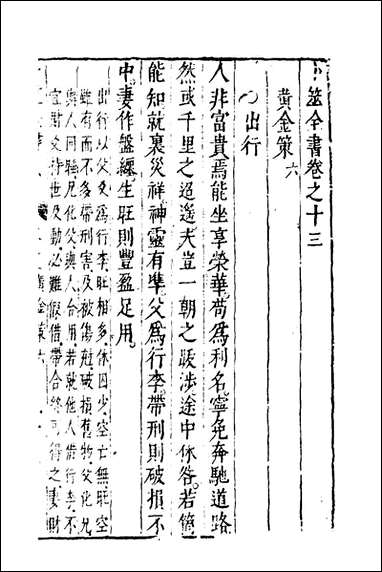 卜筮全書卷之十三
黃金策六
出行
人非富貴焉能坐享榮華苟爲利名寧免奔馳道路
然或千里之迢遥夫豈一朝之跋涉途中休咎若箇
能知就裏災祥神靈有準父爲行李帶刑則破損不
中妻作盤纏生旺則豐盈足用
出行以父爻爲行李旺相多休囚少空亡無旺空
雖有而不多帶刑害及被傷尅破損舊物父化兄
與人同睡兄化父與人合用若就他人借行李不
宜財父持世及動必難假借帶合終可得之妻財